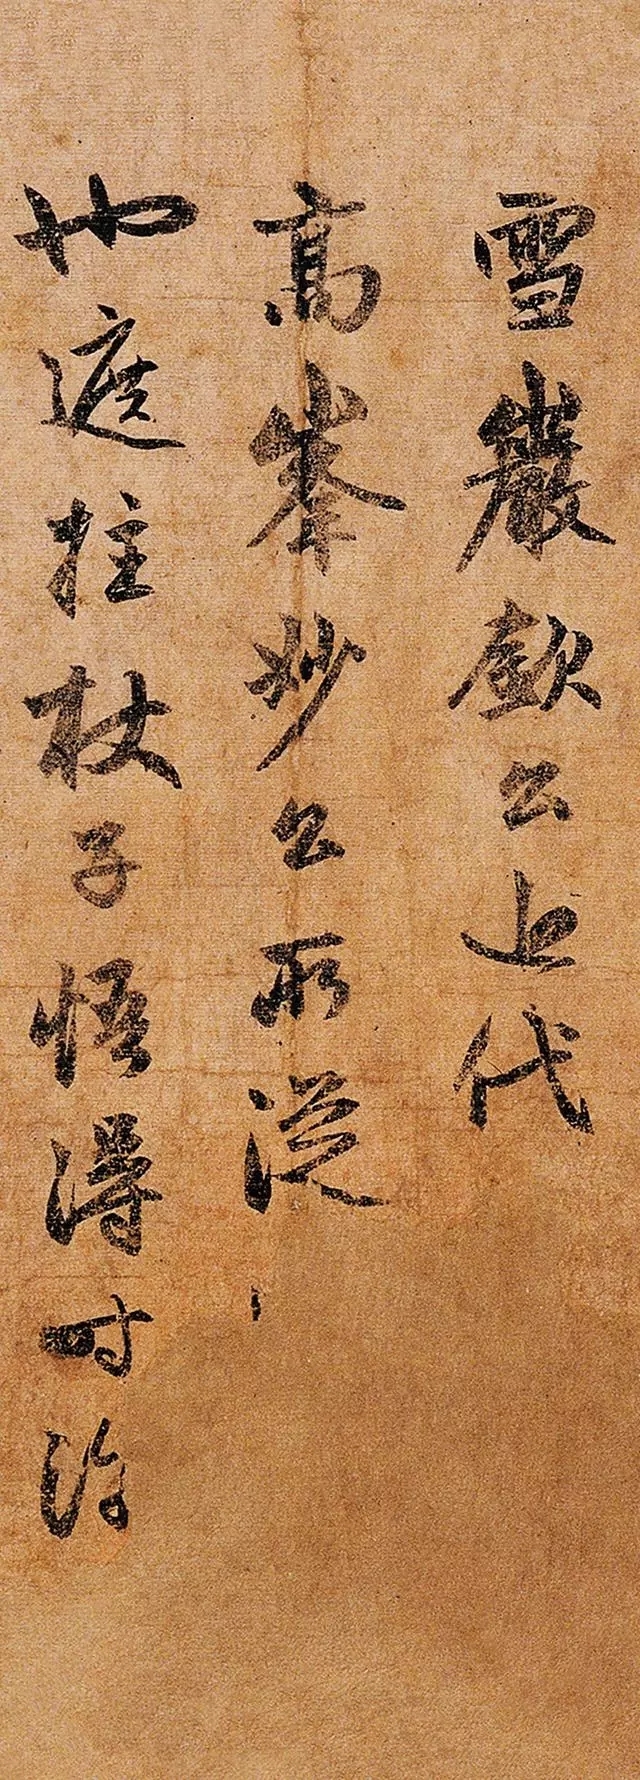 雪巖欽公上代
高峯妙公所從
也遮拄杖子悟得時證